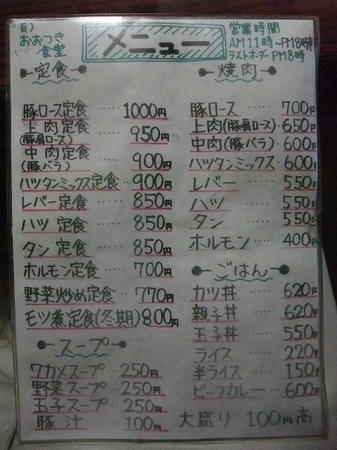 (有)おおつき食堂
メニュー
営業時間
AM11時～PM8時半
ラストオーダーPM8時
定食
豚ロース定食 ‥‥ 1000円
上肉定食(豚肩ロース) ‥‥ 950円
中肉定食(豚バラ) ‥‥ 900円
ハツタンミックス定食 ‥ 900円
レバー定食 ‥‥ 850円
ハツ 定食 ‥‥ 850円
タン 定食 ‥‥ 850円
ホルモン定食 ‥‥ 700円
野菜炒め定食 ‥‥ 770円
モツ煮定食(冬期) 800円
スープ
ワカメスープ ‥‥ 250円
野菜スープ ‥‥ 250円
玉子スープ ‥‥ 250円
豚汁 ‥‥ 100円
焼肉
豚ロース ‥‥ 700円
上肉(豚肩ロース) ‥ 650円
中肉(豚バラ) ‥‥ 600円
ハツタンミックス ‥‥ 600円
レバー ‥‥ 550円
ハツ ‥‥ 550円
タン ‥‥ 550円
ホルモン ‥‥ 400円
ごはん
カツ丼 ‥‥ 620円
親子丼 ‥‥ 620円
玉子丼 ‥‥ 550円
ライス ‥‥ 220円
半ライス ‥‥ 150円
ビーフカレー ‥‥ 600円
大盛り 100円高